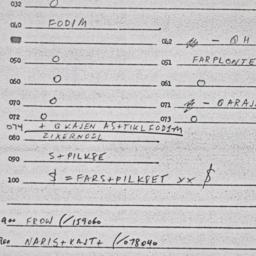 032 O
040 FODIM
042 - OH
050 O 051 FARPLONTE
060 O 061 O
070 O 071 - GARAJ
072 O 073 O
074 + GKAJEN AS+TIKLFODIM
080 ZIXERNOIL
090 S+PILKSE
100 $ = FARS+PILKSET xx $
FROW (/159060
NARIS+KAJT+ (/078040